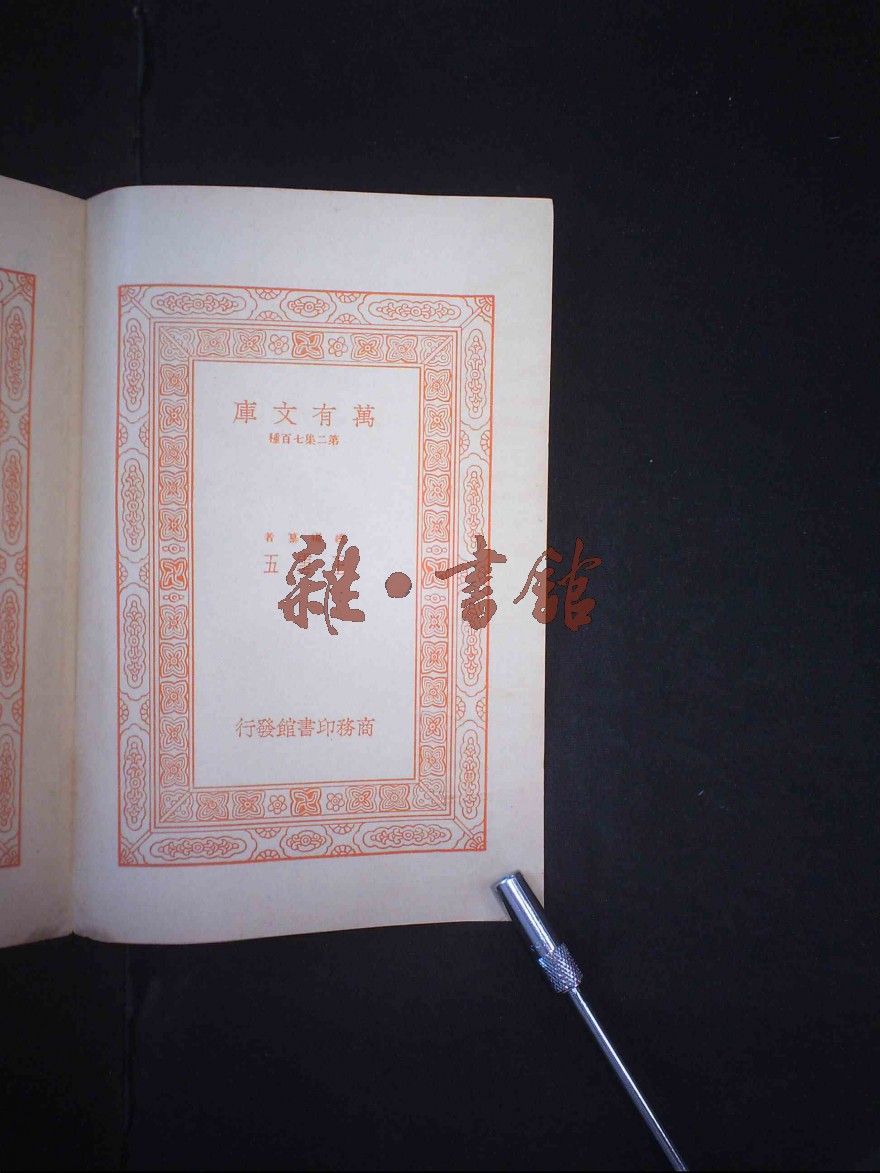 萬有文庫
第二集七百種
著
五
商務印書館發行
雜·書館